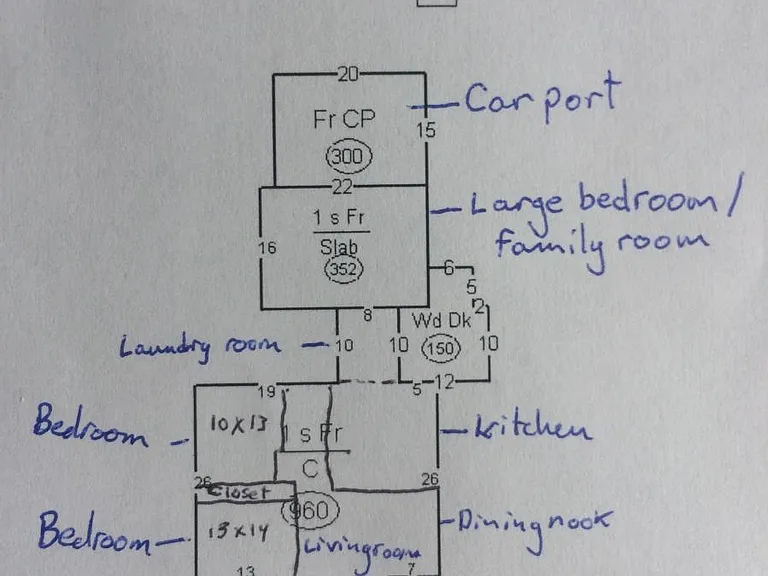 20
Fr CP
Car port
15
300
22
1 s Fr
Large bedroom /
family room
16
Slab
352
6
5
2
8
Wd Dk
Laundry room
10
10
150
10
19
5
12
Bedroom
10 x 13
1 s Fr
Kitchen
C
26
26
Closet
960
Bedroom
13 x 14
Livingroom
Dining nook
13
7